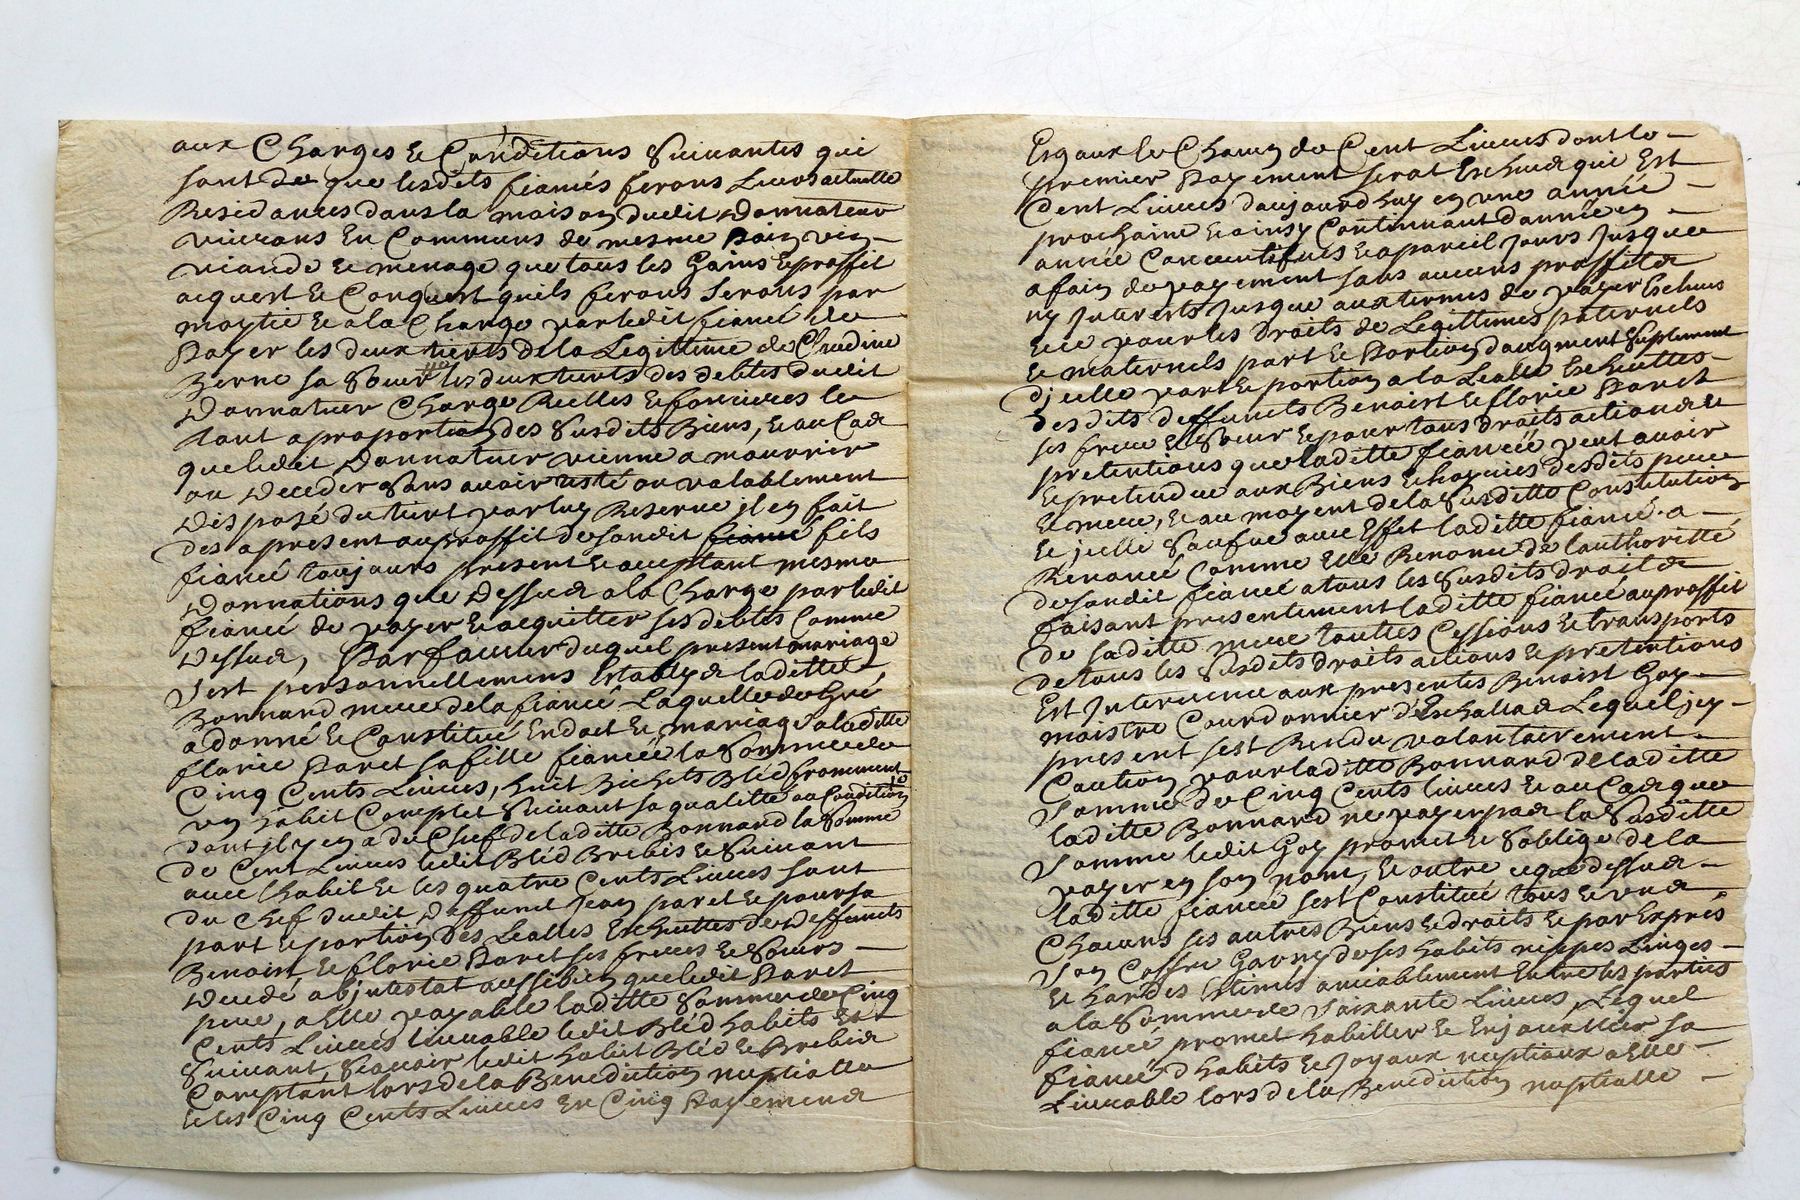 aux Charges & Conditions Suivantes qui
sont de que lesdits fiancés ferons Leurs actuelle
Residances dans la maison dudit Donnateur
vivrons En Communs de mesme pain vin
viande & menage que tous les Gains & proffit
acquest & Conquest quils ferons Serons par
moytié & a la Charge par ledit fiancé de
payer les deux tiers de la Legittime de Claudine
Berne sa Soeur les deux tierts des debtes dudit
Donnateur Charge Reelles & foncieres le
tout a proportion des Susdits Biens, & au Cas
que ledit Donnateur vienne a mourrir
ou Deceder Sans avoir testé ou valablement
Disposé du tiert par luy Reservé il en fait
des apresent au proffit de sondit fiancé fils
fiancé toujours present & acceptant mesme
Donnations que Dessus a la Charge par ledit
fiancé de payer & acquitter ses debtes Comme
Dessus, Par faveur duquel present mariage
S'est personnellemens Establys laditte
Bonnard mere de la fiancé Laquelle de Gré
a donné & Constitué En dot & mariage a laditte
florie Paret sa fille fiancée la Somme de
Cinq Cents Livres, huit Bichets Bled fromment
un habit Complet Suivant sa qualitté ou Condition
dont il y en a du Chef de laditte Bonnard la Somme
de Cent Livres ledit Bled Brebis & Suivant
avec lhabit & les quatre Cents Livres sont
du Chef dudit Deffunct Jean paret & pour sa
part & portion des Leattes Escheuttes des Deffuncts
Benoist & florie Paret ses freres & Soeurs
Decedé abjntestat aussi bien que ledit Paret
pere, a Elle payable laditte Somme de Cinq
Cents Livres livrable ledit Bled habits &
Suivant, Scavoir ledit habit Bled & Brebis
Comptant lors de la Benediction nuptialle
& les Cinq Cents Livres En Cinq Payemens
Esgaux de Chacun de Cent Livres dont le
premier Payement serat Escheus qui Est
Cent Livres daujourdhuy en une année
prochaine & ainsy Continuant dannée en
année Concecutifves & a pareil Jours Jusque
a fain de payement sans aucuns proffits
ny Interests Jusque aux termes de payer Escheus
& ce pour les Droits de Legittimes paternels
& maternels part & Portion daugment Suplement
djcelle part & portion a la Leatte Escheuttes
Desdits deffuncts Benoist & florie Paret
ses frere & Soeur & pour tous droits actions &
pretentions que laditte fiancée peut avoir
& pretendre aux Biens & hoyries desdits pere
& mere, & au moyent de la Susditte Constitution
& jcelle Sauf ne avec Effet laditte fiancé a
Renoncé Comme Elle Renonce de lauthoritté
de sondit fiancé a tous les Susdits droits
faisant presentement laditte fiancé au proffit
de saditte mere touttes Cessions & transports
de tous les Susdits droits actions & pretentions
Est Intervenu aux presentes Benoist Goy
maistre Courdonnier d'Eschallas Lequel jcy
present s'est Rendu volontairement
Caution pour laditte Bonnard de laditte
Somme de Cinq Cents livres & au Cas que
laditte Bonnard ne payer pas la Susditte
Somme ledit Goy promet & Soblige de la
payer en son nom, & outre ce que dessus
laditte fiancée s'est Constitué tous & uns
Chacuns ses autres Biens & droits & par Exprés
Son Coffre Garny de ses habits nippes Linges
& hardes Estimés amiablement Entre les parties
a la Somme de Soixante Livres, Lequel
fiancé promet habiller & Enjoualler sa
fiancé dhabits & Joyaux nuptiaux a Elle
Livrable lors de la Benediction nuptialle